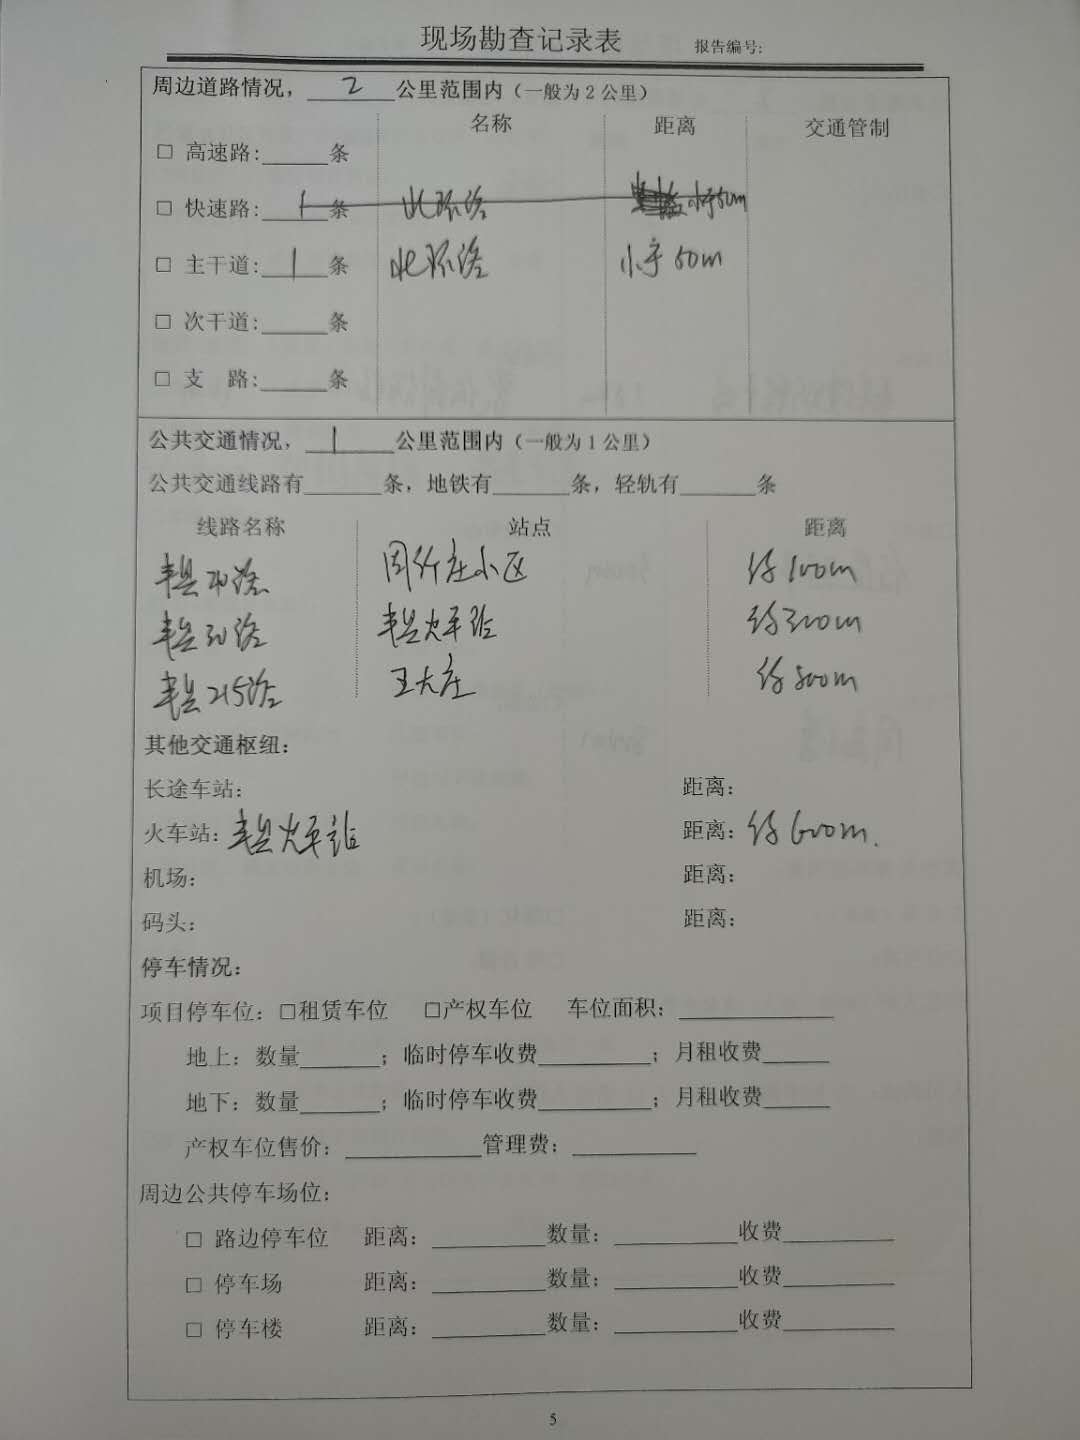 现场勘查记录表 报告编号:
周边道路情况，2公里范围内（一般为2公里）
名称 距离 交通管制
□ 高速路:______条
□ 快速路: 1 条 北环路 小于50m
□ 主干道: 1 条 北环路 小于50m
□ 次干道:______条
□ 支 路:______条
公共交通情况，1公里范围内（一般为1公里）
公共交通线路有______条，地铁有______条，轻轨有______条
线路名称 站点 距离
丰县 路 周行庄小区 约100m
丰县 路 丰县火车站 约300m
丰县215路 王大庄 约800m
其他交通枢纽:
长途车站: 距离:
火车站: 丰县火车站 距离: 约600m.
机场: 距离:
码头: 距离:
停车情况:
项目停车位: □租赁车位 □产权车位 车位面积:____________
地上: 数量______; 临时停车收费________; 月租收费______
地下: 数量______; 临时停车收费________; 月租收费______
产权车位售价: __________管理费: __________
周边公共停车场位:
□ 路边停车位 距离: ________数量: _________收费________
□ 停车场 距离: ________数量: _________收费________
□ 停车楼 距离: ________数量: _________收费________
5